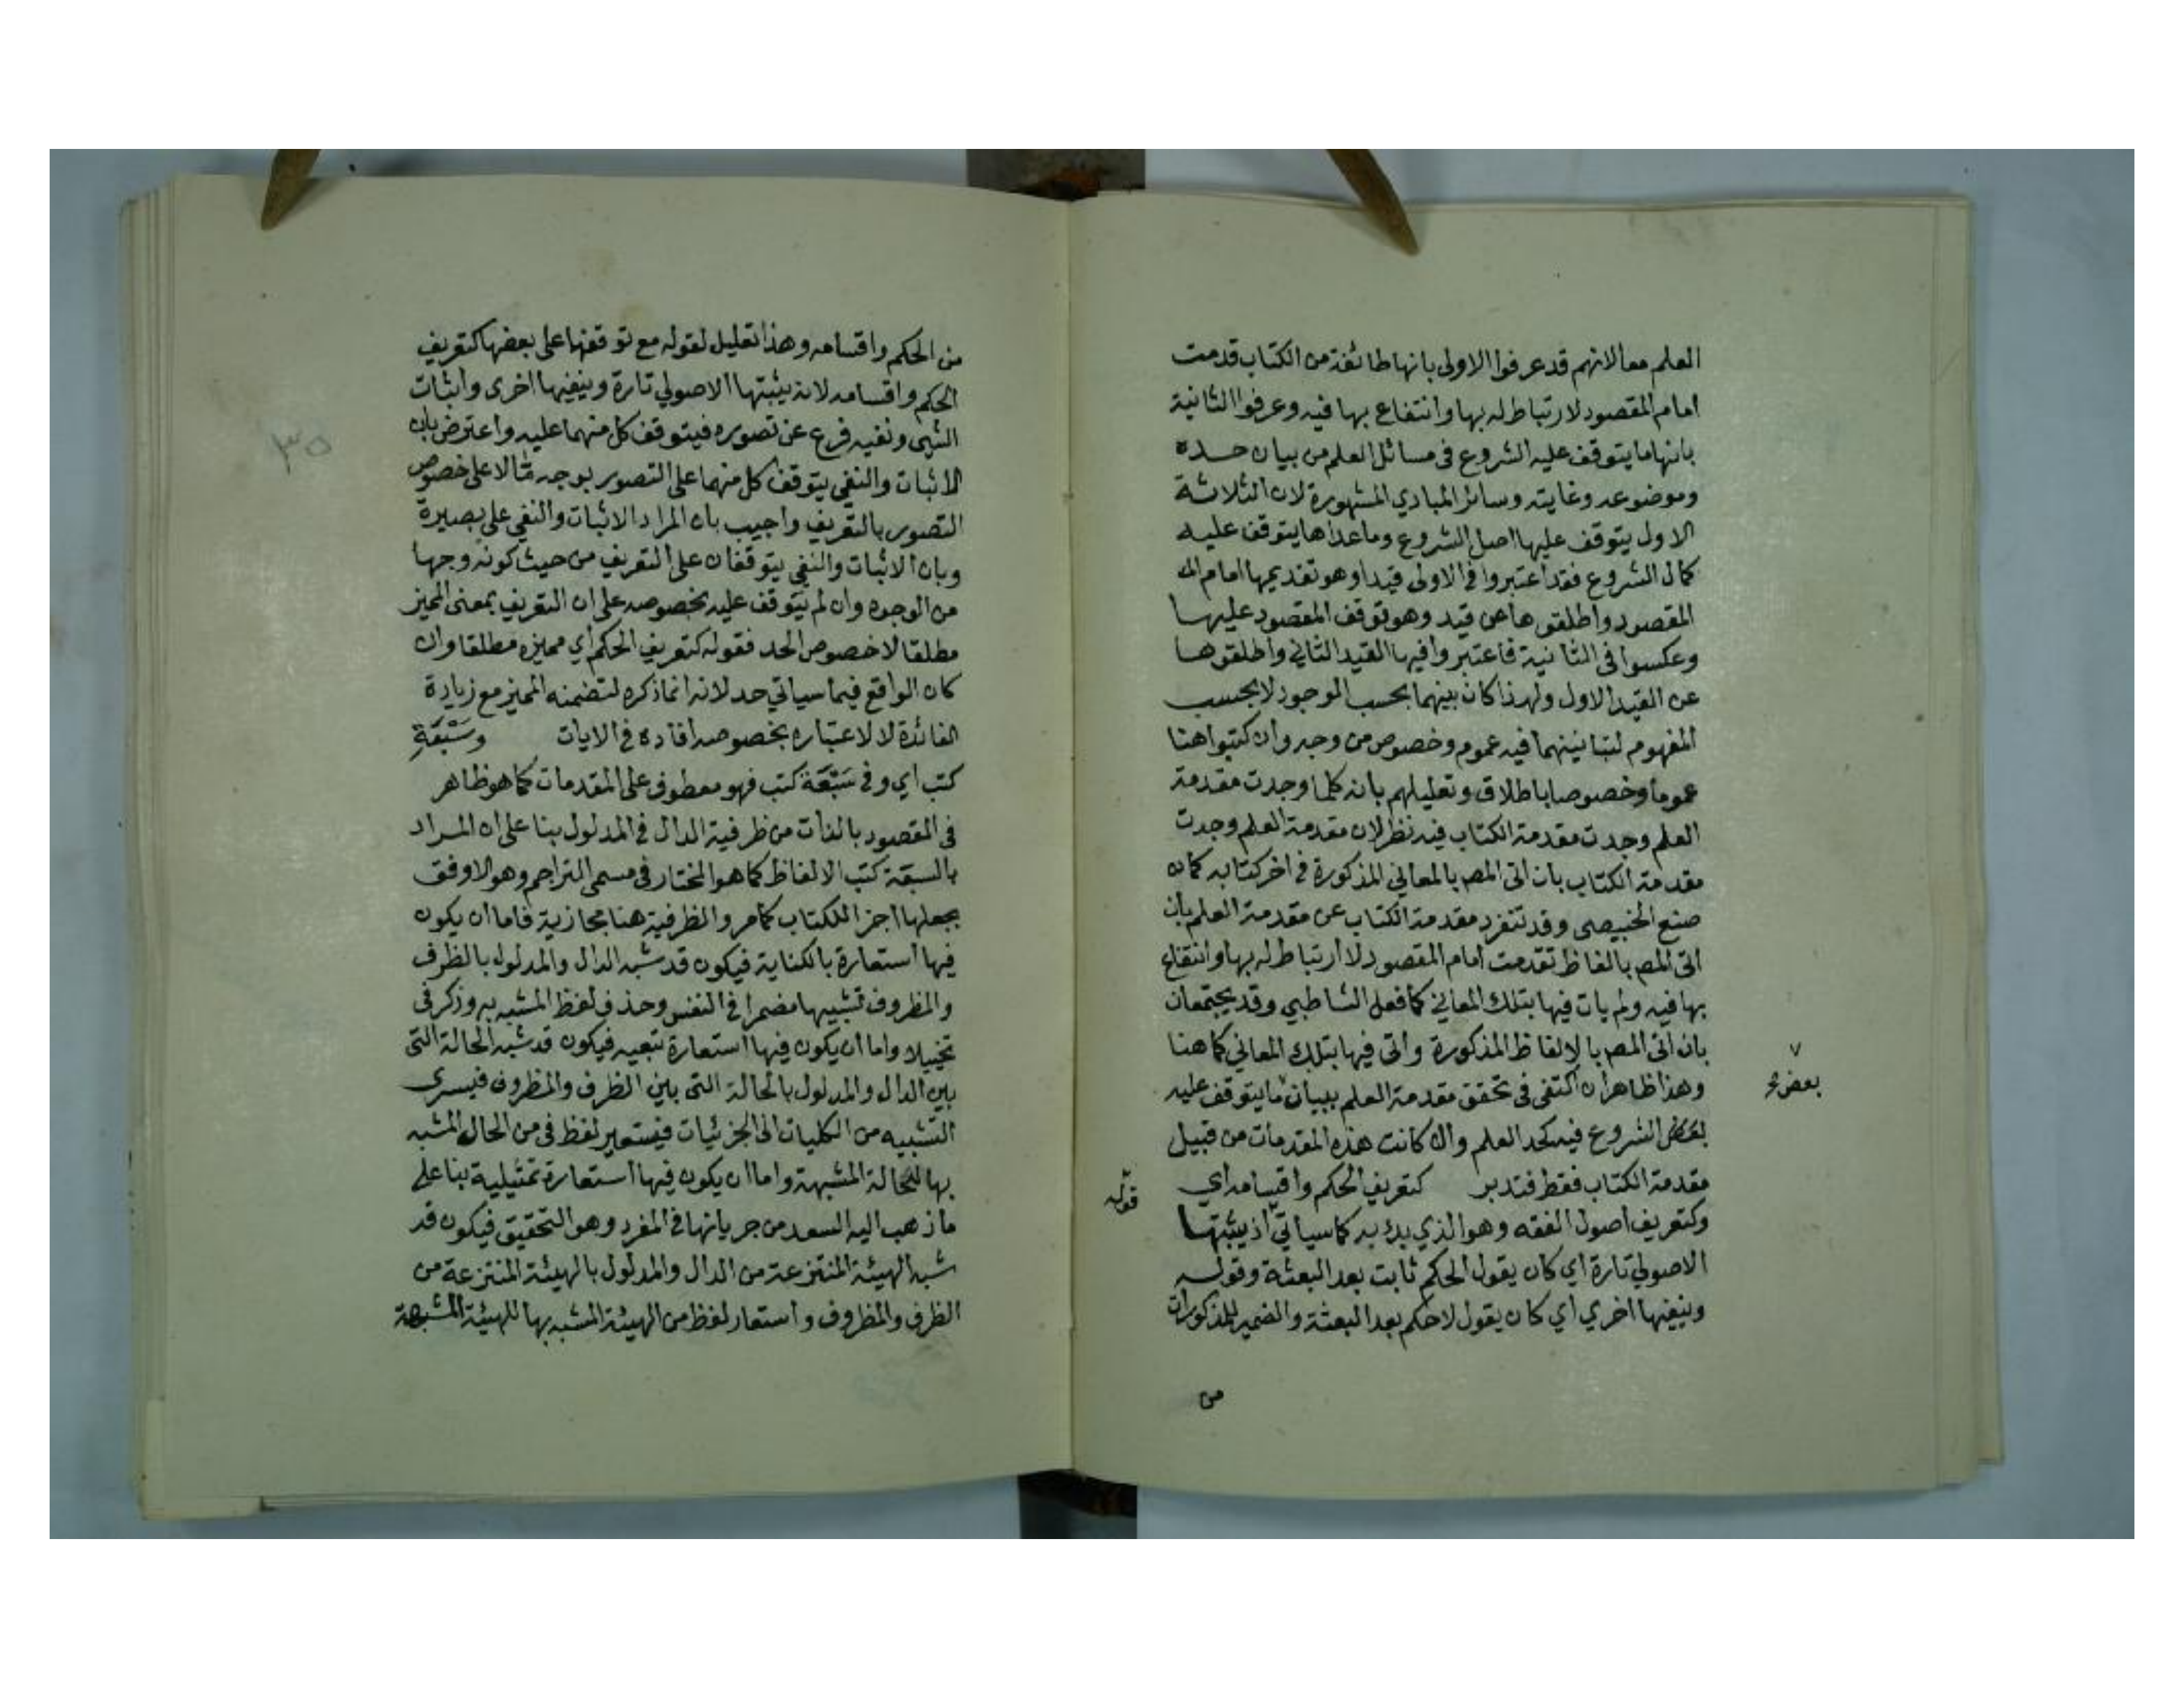 العلم معا لانهم قد عرفوا الاولى بانها طائفة من الكتاب قدمت
امام المقصود لارتباط له بها وانتفاع بها فيه وعرفوا الثانية
بانها ما يتوقف عليه الشروع في مسائل العلم من بيان حده
وموضوعه وغايته وسائر المبادي المشهورة لان الثلاثة
الاول يتوقف عليها اصل الشروع وما عداها يتوقف عليه
كمال الشروع فقد اعتبروا في الاولى قيدا وهو تقديمها امام الم
المقصود واطلقوها عن قيد وهو توقف المقصود عليها
وعكسوا في الثانية فاعتبروا فيها القيد الثاني واطلقوها
عن القيد الاول ولهذا كان بينهما بحسب الوجود لا بحسب
المفهوم لتباينهما فيه عموم وخصوص من وجه وان كتبوا هنا
عموما وخصوصا باطلاق وتعليلهم بانه كلما وجدت مقدمة
العلم وجدت مقدمة الكتاب فيه نظر لان مقدمة العلم وجدت
مقدمة الكتاب بان اتى المص بالمعاني المذكورة في اخر كتابه كما
صنع الخبيصي وقد تنفرد مقدمة الكتاب عن مقدمة العلم بان
اتى المص بالفاظ تقدمت امام المقصود لارتباط له بها وانتفاع
بها فيه ولم يات فيها بتلك المعاني كما فعل الشاطبي وقد يجتمعان
بان اتى المص بالالفاظ المذكورة واتى فيها بتلك المعاني كما هنا
وهذا ظاهر ان اكتفى في تحقق مقدمة العلم ببيان ما يتوقف عليه
بعض الشروع فيه كحد العلم والا كانت هذه المقدمات من قبيل
مقدمة الكتاب فقط فتدبر كتعريف الحكم واقسامه اي
وكتعريف اصول الفقه وهو الذي بدء به كما سياتي اذ يثبتها
الاصولي تارة اي كان يقول الحكم ثابت بعد البعثة وقوله
وينفيها اخري اي كان يقول لا حكم بعد البعثة والضمير للمذكورات
من
بعض
قوله
من الحكم واقسامه وهذا تعليل لقوله مع توقفها على بعضها كتعريف
الحكم واقسامه لانه يثبتها الاصولي تارة وينفيها اخرى واثبات
الشي ونفيه فرع عن تصوره فيتوقف كل منهما عليه واعترض بان
الاثبات والنفي يتوقف كل منهما على التصور بوجه ما لا على خصوص
التصور بالتعريف واجيب بان المراد الاثبات والنفي على بصيرة
وبان الاثبات والنفي يتوقفان على التعريف من حيث كونه وجها
من الوجوه وان لم يتوقف عليه بخصوصه على ان التعريف بمعنى المميز
مطلقا لا خصوص الحد فقوله كتعريف الحكم اي مميزه مطلقا وان
كان الواقع فيما سياتي حد لانه انما ذكره لتضمنه المميز مع زيادة
الفائدة لا لاعتباره بخصوصه افاده في الايات وسَبْعَةِ
كتب اي وفي سَبْعَة كتب فهو معطوف على المقدمات كما هو ظاهر
في المقصود بالذات من ظرفية الدال في المدلول بنا على ان المراد
بالسبعة كتب الالفاظ كما هو المختار في مسمى التراجم وهو الاوفق
بجعلها اجزا للكتاب كما مر والظرفية هنا مجازية فاما ان يكون
فيها استعارة بالكناية فيكون قد شبه الدال والمدلول بالظرف
والمظروف تشبيها مضمرا في النفس وحذف لفظ المشبه به وذكر في
تخييلا واما ان يكون فيها استعارة تبعيه فيكون قد شبه الحالة التي
بين الدال والمدلول بالحالة التي بين الظرف والمظروف فيسرى
التشبيه من الكليات الى الجزئيات فيستعير لفظ في من الحال المشبه
بها للحالة المشبهة واما ان يكون فيها استعارة تمثيلية بنا على
ما ذهب اليه السعد من جريانها في المفرد وهو التحقيق فيكون قد
شبه الهيئة المنتزعة من الدال والمدلول بالهيئة المنتزعة من
الظرف والمظروف واستعار لفظ من الهيئة المشبه بها للهيئة المشبهة
٣٥